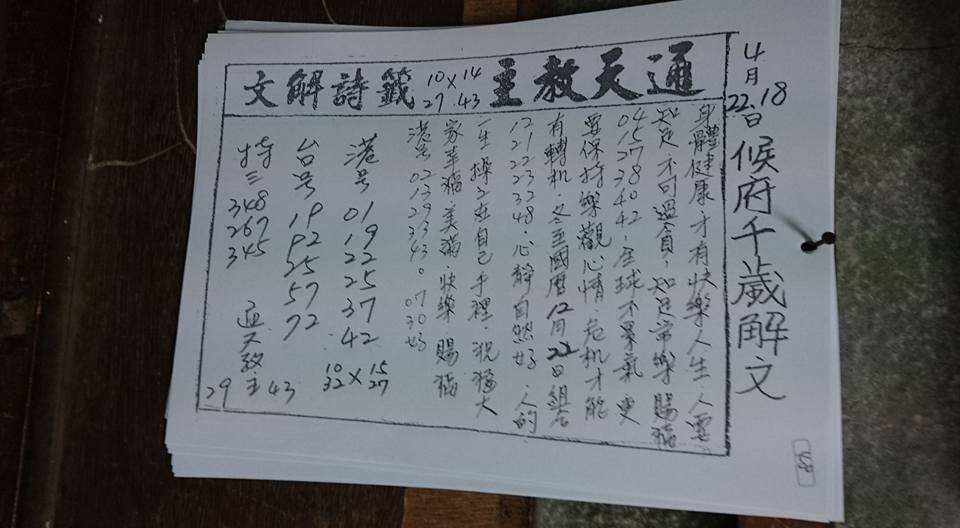 4月22.18日候府千歲解文
通天教主
10 × 14
27 . 43
籤詩解文
身體健康才有快樂人生.人要
知足不可過貪,知足常樂賜福
04 15 27 38 40 42.全球不景氣更
要保持樂觀心情.危机才能
有轉机.冬至國曆12月22日組合
12 21 22 23 32 48.心靜自然好.人的
一生操之在自己手裡.祝福大
家幸福美滿.快樂賜福
港号 02 13 29 33 43。07 30 好
港号 01 19 22 25 37 42
10 × 15
32 27
台号 19 92 25 57 72
特三 348 267 345 通天教主
29 43